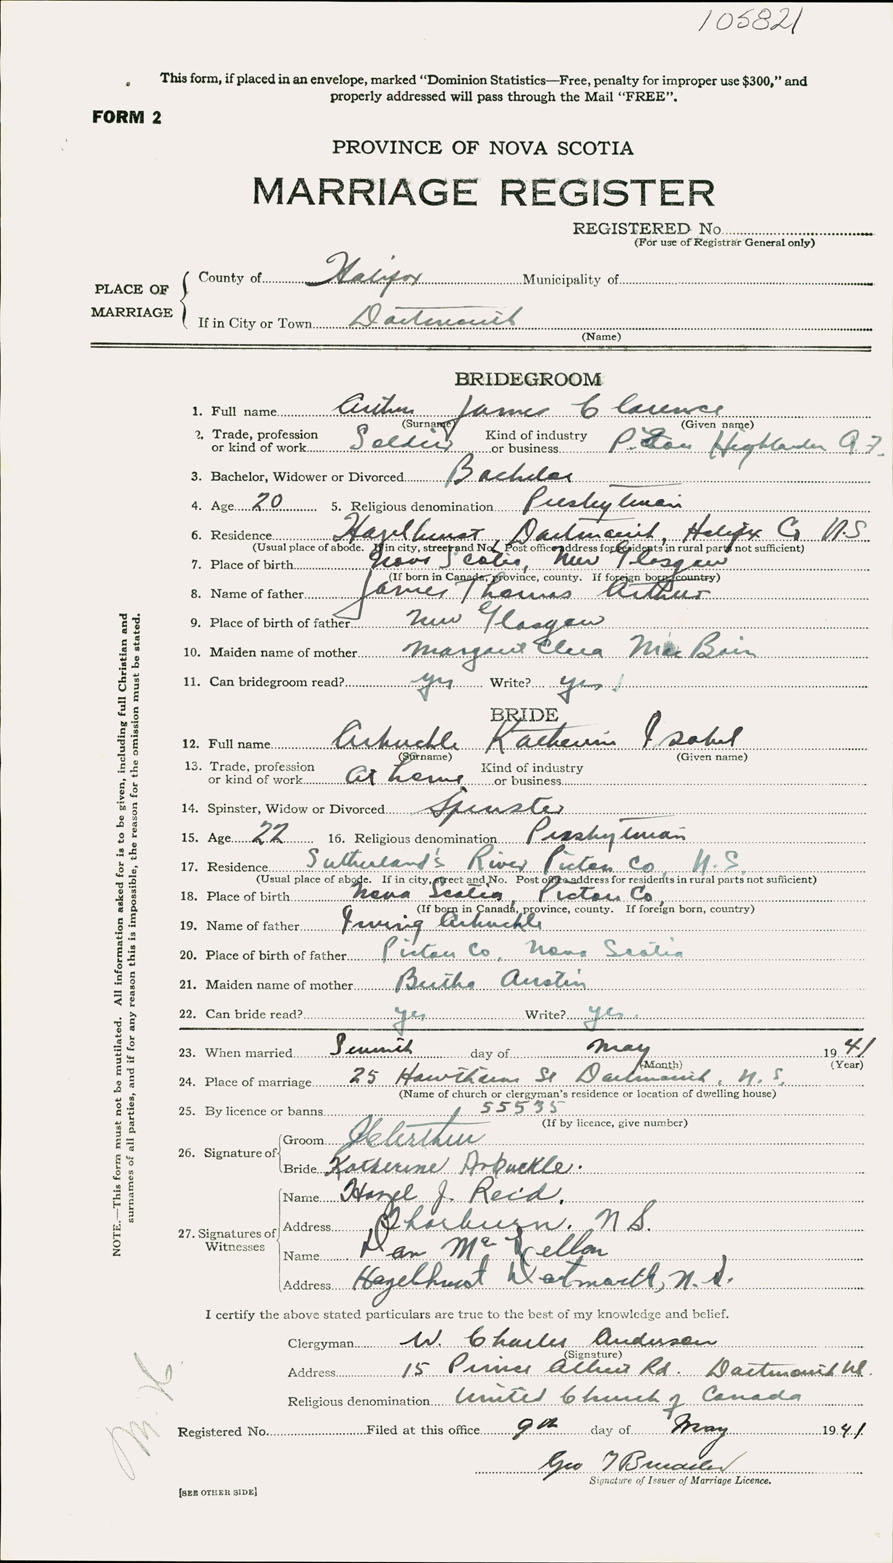 105821
This form, if placed in an envelope, marked "Dominion Statistics—Free, penalty for improper use $300," and
properly addressed will pass through the Mail "FREE".
FORM 2
PROVINCE OF NOVA SCOTIA
MARRIAGE REGISTER
REGISTERED No.
(For use of Registrar General only)
PLACE OF MARRIAGE
County of Halifax Municipality of
If in City or Town Dartmouth
(Name)
BRIDEGROOM
1. Full name Arthur James Clarence
(Surname) (Given name)
2. Trade, profession or kind of work Soldier Kind of industry or business Pictou Highlanders A.F.
3. Bachelor, Widower or Divorced Bachelor
4. Age 20 5. Religious denomination Presbyterian
6. Residence Hazelhurst, Dartmouth, Halifax Co N.S
(Usual place of abode. If in city, street and No. Post office address for residents in rural parts not sufficient)
7. Place of birth Nova Scotia, New Glasgow
(If born in Canada, province, county. If foreign born, country)
8. Name of father James Thomas Arthur
9. Place of birth of father New Glasgow
10. Maiden name of mother Margaret Mac Bain
11. Can bridegroom read? yes Write? yes
BRIDE
12. Full name Arbuckle Katherine Isobel
(Surname) (Given name)
13. Trade, profession or kind of work At home Kind of industry or business
14. Spinster, Widow or Divorced Spinster
15. Age 22 16. Religious denomination Presbyterian
17. Residence Sutherland's River Pictou Co, N.S.
(Usual place of abode. If in city, street and No. Post office address for residents in rural parts not sufficient)
18. Place of birth Nova Scotia, Pictou Co,
(If born in Canada, province, county. If foreign born, country)
19. Name of father Irving Arbuckle
20. Place of birth of father Pictou Co, Nova Scotia
21. Maiden name of mother Bertha Austin
22. Can bride read? yes Write? yes.
23. When married Seventh day of May 1941
(Month) (Year)
24. Place of marriage 25 Hawthorne St Dartmouth, N.S.
(Name of church or clergyman's residence or location of dwelling house)
25. By licence or banns 55535
(If by licence, give number)
26. Signature of
Groom JCArthur
Bride Katherine Arbuckle.
27. Signatures of Witnesses
Name Hazel J. Reid,
Address Thorburn. N S.
Name Dan
Address Hazelhurst Dartmouth, N.S.
I certify the above stated particulars are true to the best of my knowledge and belief.
Clergyman W. Charles Anderson
(Signature)
Address 15 Prince Albert Rd. Dartmouth
Religious denomination United Church of Canada
Registered No. Filed at this office 9th day of May 1941
Geo
Signature of Issuer of Marriage Licence.
[SEE OTHER SIDE]
NOTE.—This form must not be mutilated. All information asked for is to be given, including full Christian and
surnames of all parties, and if for any reason this is impossible, the reason for the omission must be stated.